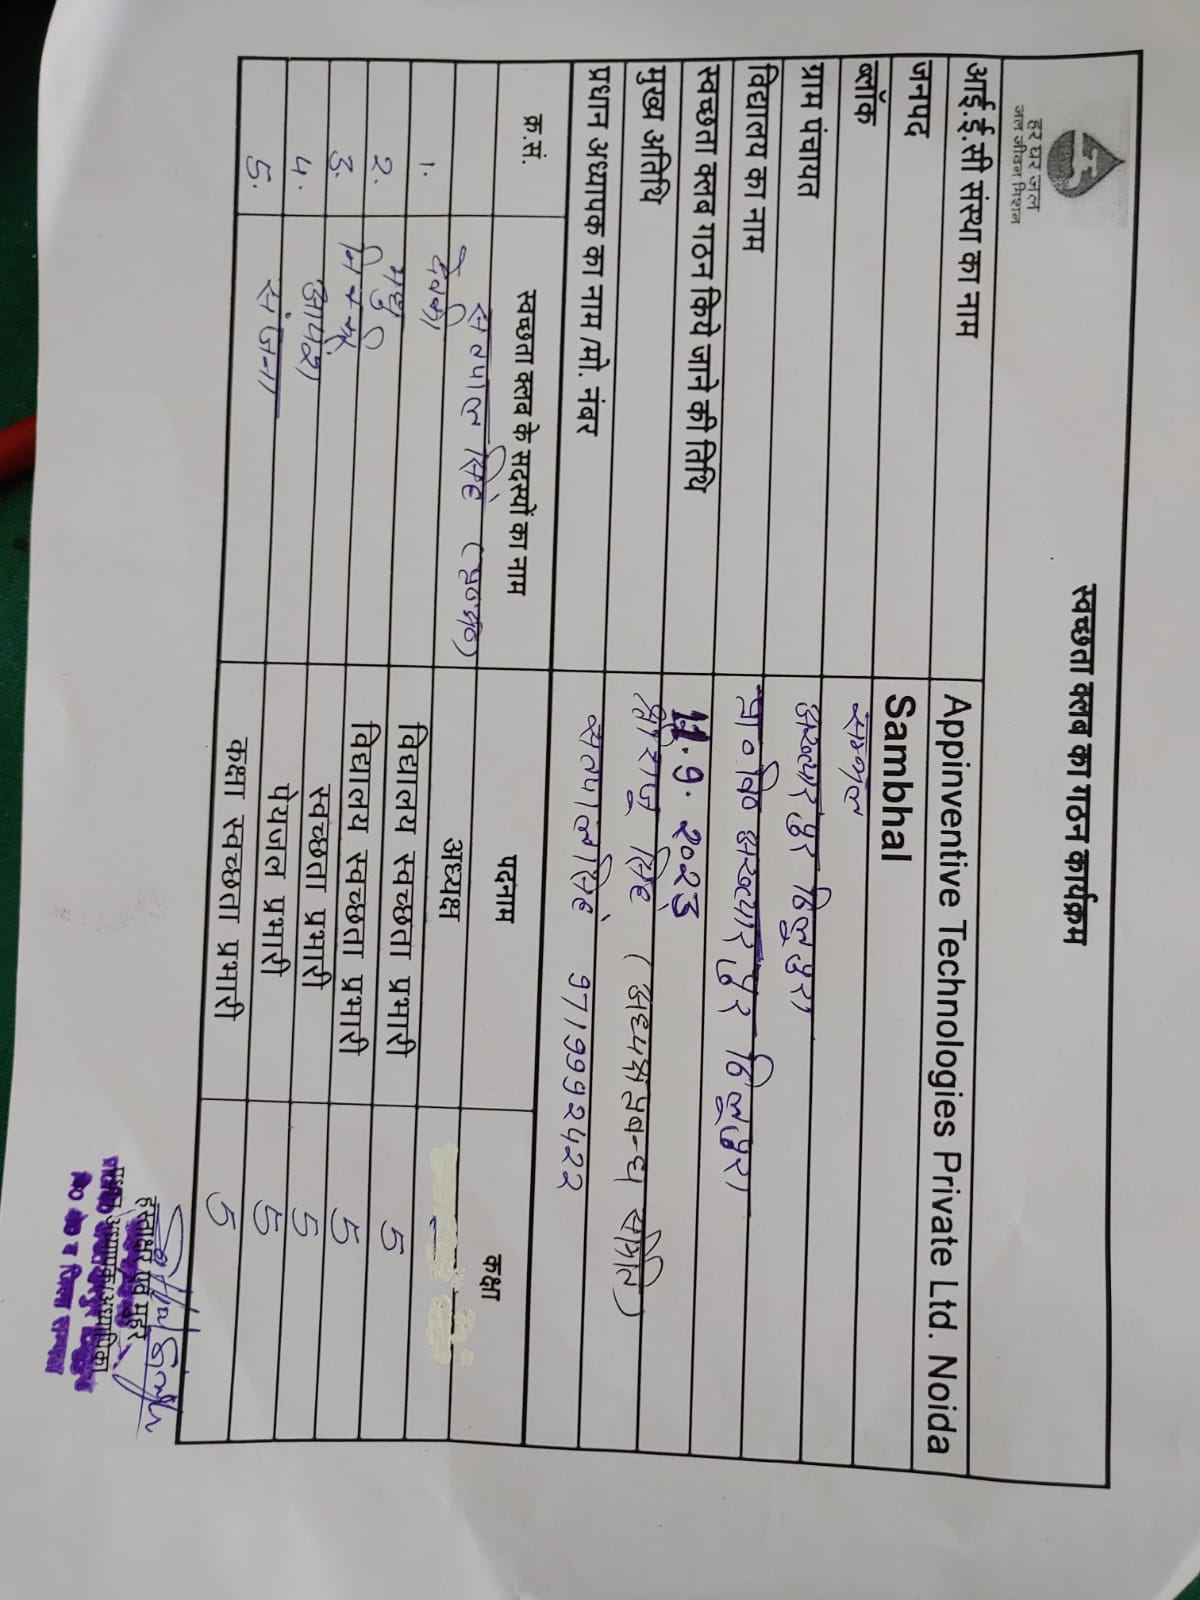 हर घर जल
जल जीवन मिशन
स्वच्छता क्लब का गठन कार्यक्रम
आई.ई.सी संस्था का नाम Appinventive Technologies Private Ltd. Noida
जनपद Sambhal
ब्लॉक सम्भल
ग्राम पंचायत अख्त्यारपुर
विद्यालय का नाम प्रा० वि० अख्त्यारपुर
स्वच्छता क्लब गठन किये जाने की तिथि 11.9.2023
मुख्य अतिथि श्रीराजू सिंह (अध्यक्ष प्रबन्ध समिति)
प्रधान अध्यापक का नाम /मो. नंबर सतपाल सिंह 9719992422
क्र.सं. स्वच्छता क्लब के सदस्यों का नाम पदनाम कक्षा
सतपाल सिंह अध्यक्ष
1. देवकी विद्यालय स्वच्छता प्रभारी 5
2. मधु विद्यालय स्वच्छता प्रभारी 5
3. स्वच्छता प्रभारी 5
4. पेयजल प्रभारी 5
5. संजना कक्षा स्वच्छता प्रभारी 5
हस्ताक्षर एवं मुहर